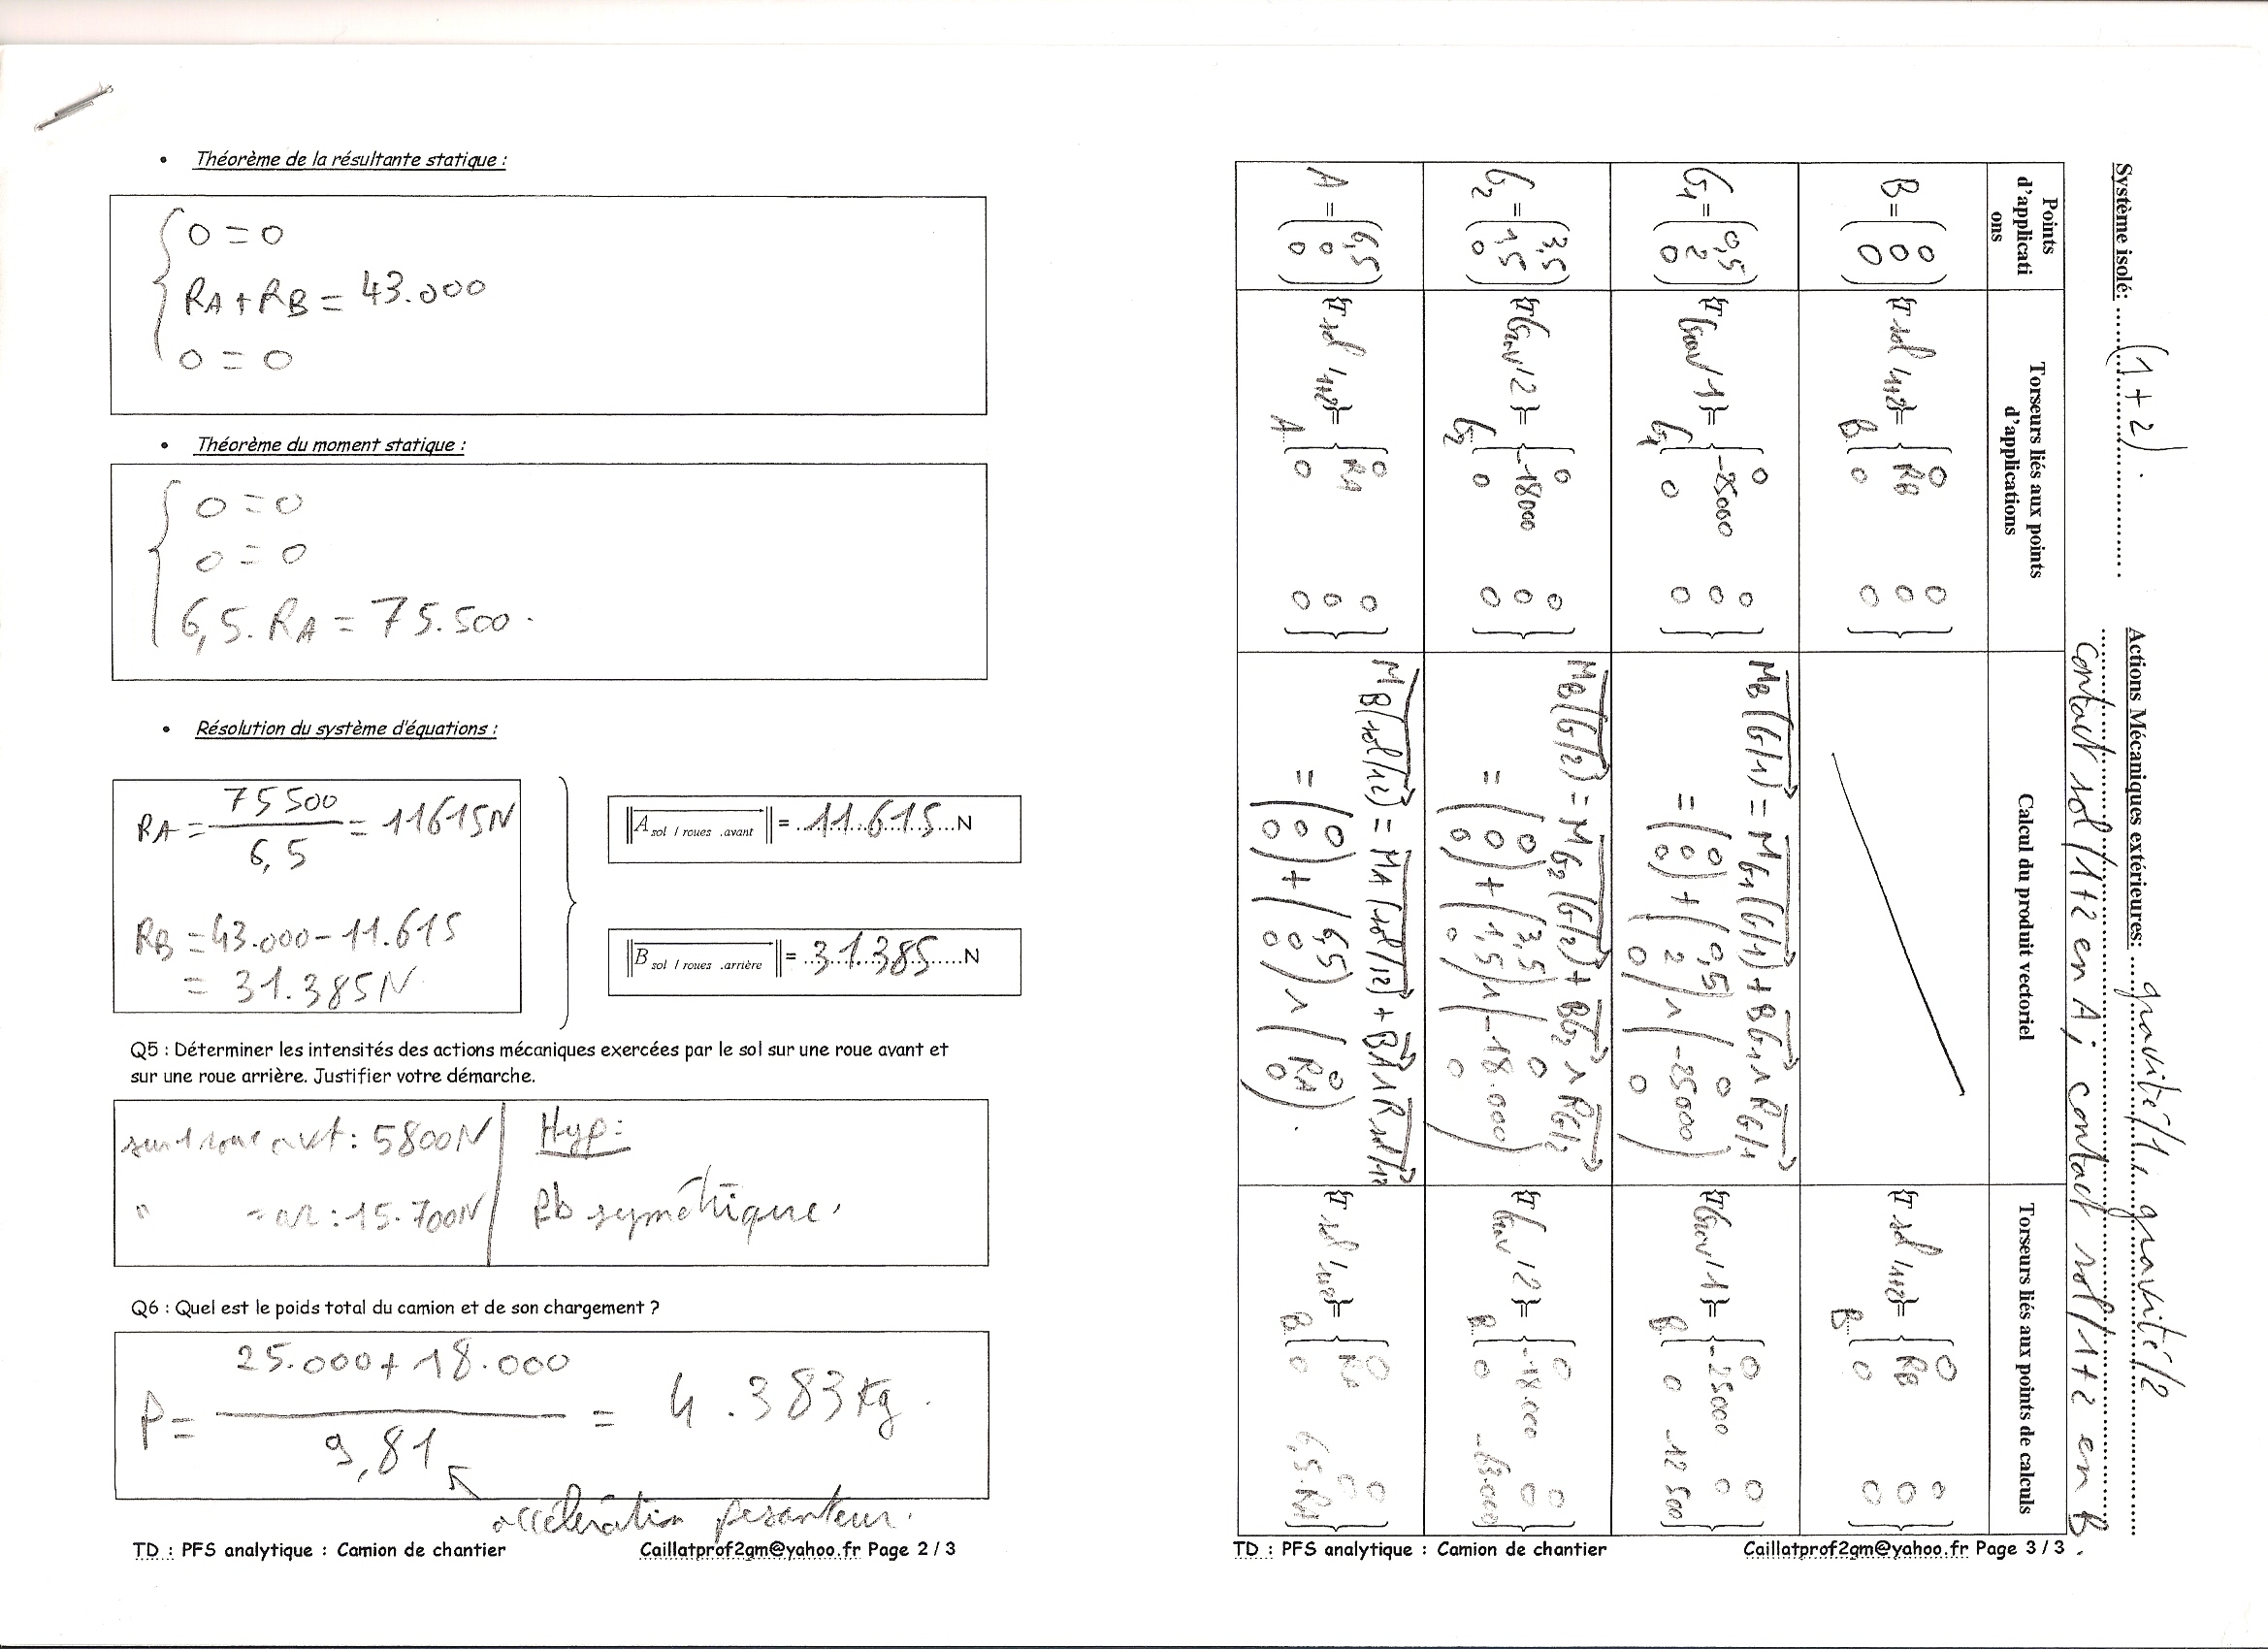 • Théorème de la résultante statique :
0 = 0
RA + RB = 43.000
0 = 0
• Théorème du moment statique :
0 = 0
0 = 0
6,5. RA = 75.500.
• Résolution du système d'équations :
RA = 75500 / 6,5 = 11615N
RB = 43.000 - 11.615
= 31.385N
||A sol / roues .avant|| = ..11.615...N
||B sol / roues .arrière|| = ..31.385....N
Q5 : Déterminer les intensités des actions mécaniques exercées par le sol sur une roue avant et
sur une roue arrière. Justifier votre démarche.
sur 1 roue avt : 5800N
" = ar : 15.700N
Hyp :
Pb symétrique.
Q6 : Quel est le poids total du camion et de son chargement ?
P = 25.000 + 18.000 / 9,81 = 4.383 kg.
accélération pesanteur.
TD : PFS analytique : Camion de chantier Caillatprof2gm@yahoo.fr Page 2 / 3
Système isolé: ......(1 + 2)........ Actions Mécaniques extérieures: ...gravité/1, gravité/2
contact sol/1+2 en A ; contact sol/1+2 en B.
Points d'applicati ons
Torseurs liés aux points d'applications
Calcul du produit vectoriel
Torseurs liés aux points de calculs
B = (0 0 0)
{T sol/1+2} = B {0 RB 0 0 0 0}
{T sol/1+2} = B {0 RB 0 0 0 0}
G1 = (0,5 2 0)
{T Grav/1} = G1 {0 -25000 0 0 0 0}
MB(G/1) = MG1(G/1) + BG1 ∧ RG/1
= (0 0 0) + (0,5 2 0) ∧ (0 -25000 0)
{T Grav/1} = B {0 -25000 0 0 0 -12500}
G2 = (3,5 1,5 0)
{T Grav/2} = G2 {0 -18000 0 0 0 0}
MB(G/2) = MG2(G/2) + BG2 ∧ RG/2
= (0 0 0) + (3,5 1,5 0) ∧ (0 -18.000 0)
{T Grav/2} = B {0 -18.000 0 0 0 -63.000}
A = (6,5 0 0)
{T sol/1+2} = A {0 RA 0 0 0 0}
MB(sol/12) = MA(sol/12) + BA ∧ Rsol/12
= (0 0 0) + (6,5 0 0) ∧ (0 RA 0).
{T sol/1+2} = B {0 RA 0 0 0 6,5.RA}
TD : PFS analytique : Camion de chantier Caillatprof2gm@yahoo.fr Page 3 / 3